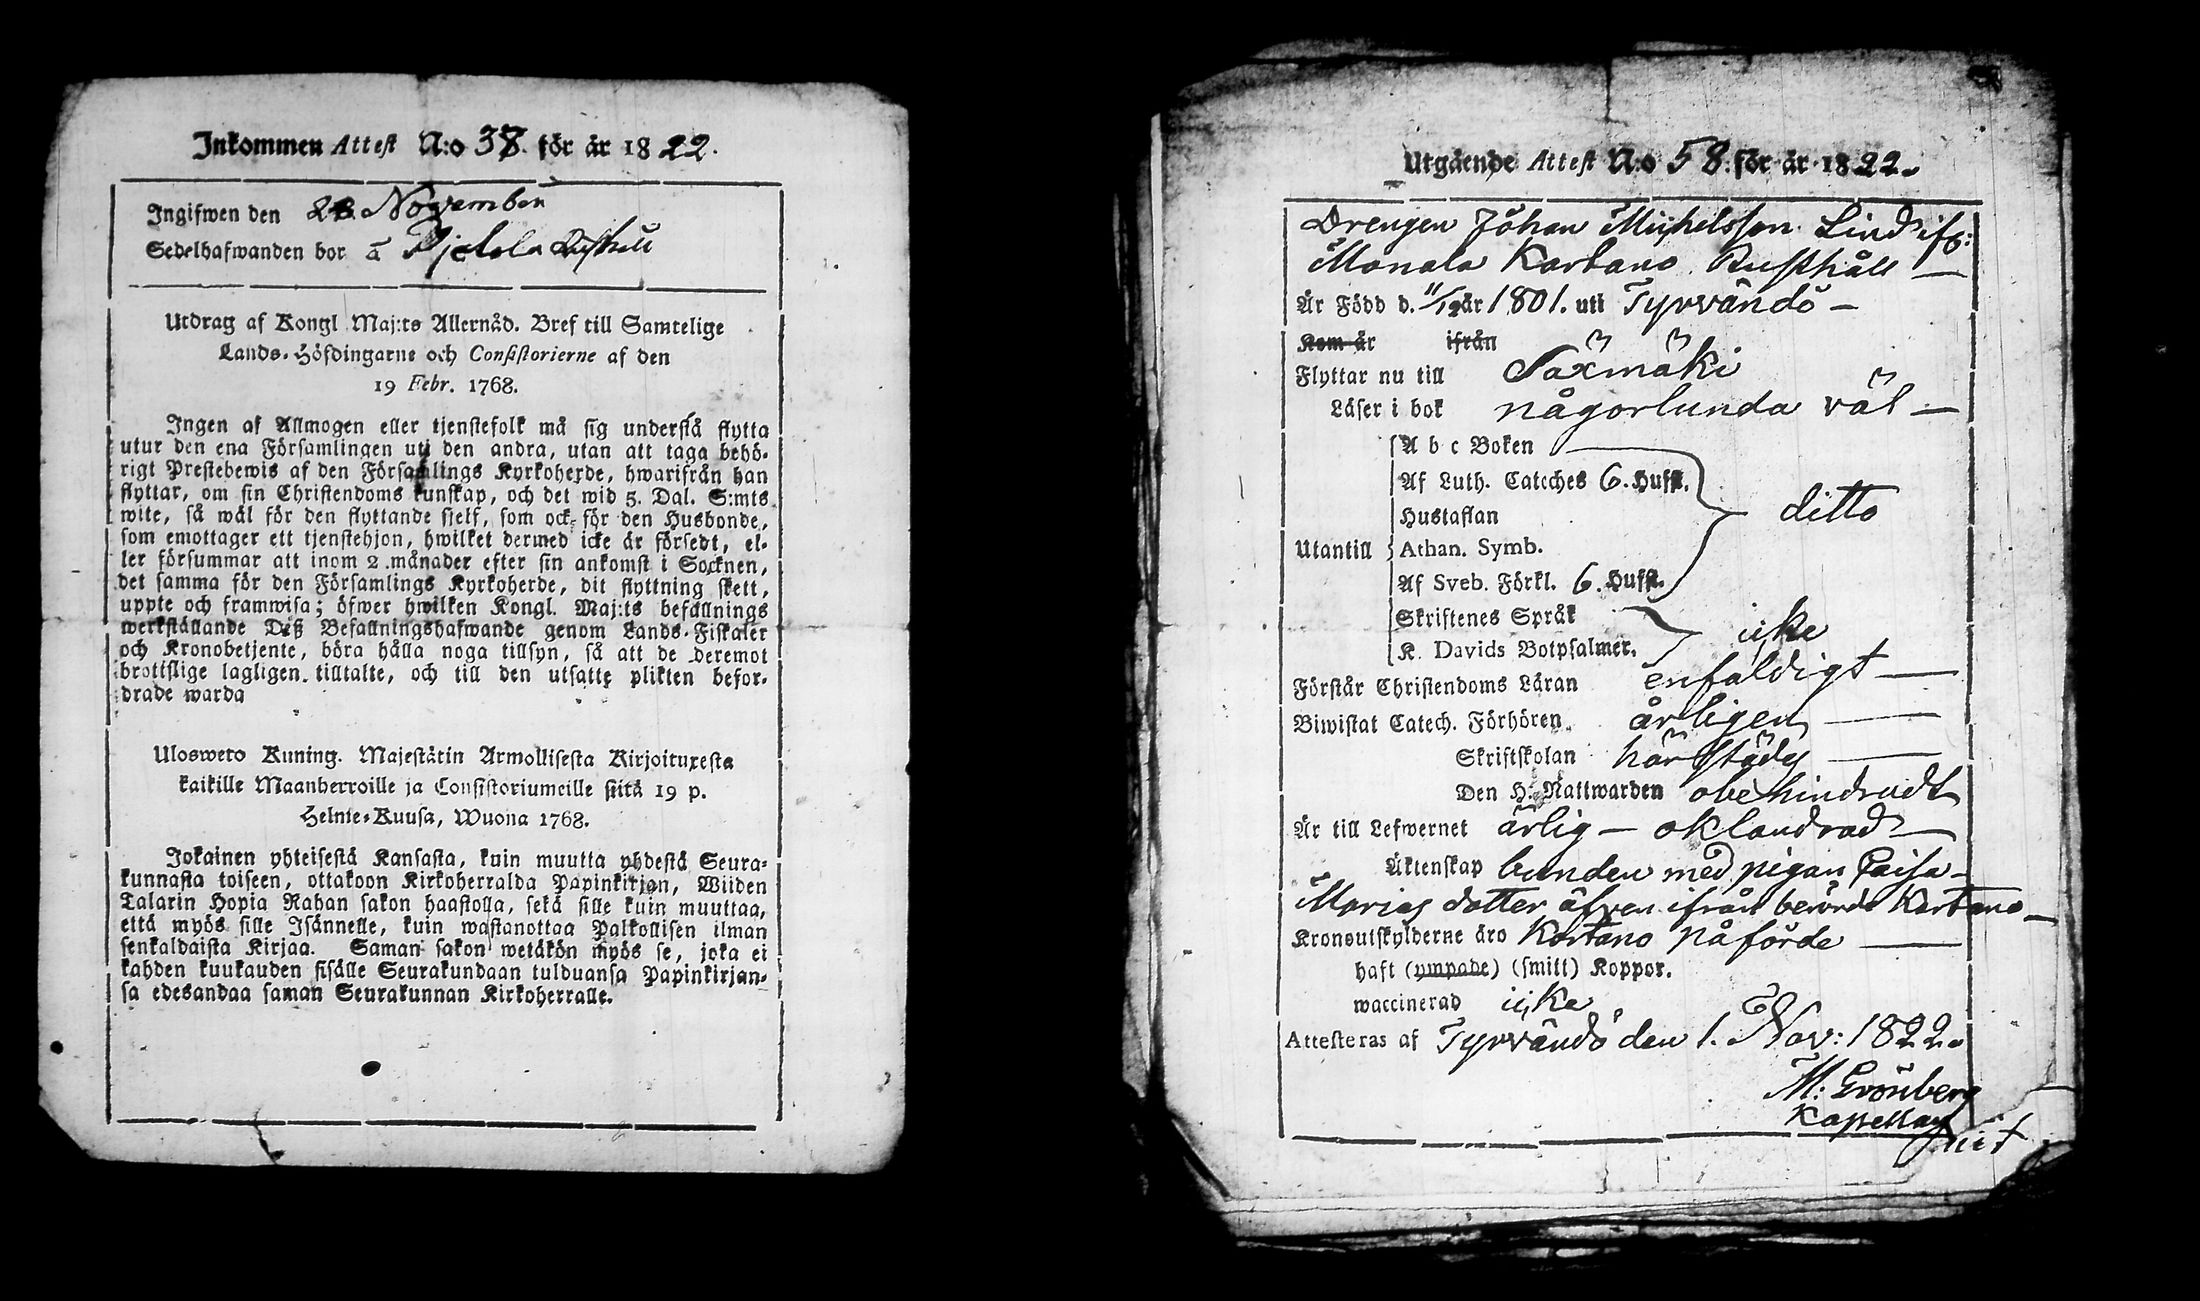 Inkommen Attest N:o 38. för år 1822.
Ingifwen den 28. November
Sedelhafwanden bor å Pjetola Rusthåll
Utdrag af Kongl. Maj:ts Allernåd. Bref till Samtelige
Lands-Höfdingarne och Consistorierne af den
19 Febr. 1768.
Ingen af Allmogen eller tjenstefolk må sig understå flytta
utur den ena Församlingen uti den andra, utan att taga behö-
rigt Prestebewis af den Församlings Kyrkoherde, hwarifrån han
flyttar, om sin Christendoms kunskap, och det wid 5. Dal. S:mts
wite, så wäl för den flyttande sjelf, som ock för den Husbonde,
som emottager ett tjenstehjon, hwilket dermed icke är försedt, el-
ler försummar att inom 2 månader efter sin ankomst i Socknen,
det samma för den Församlings Kyrkoherde, dit flyttning skett,
uppte och framwisa; öfwer hwilken Kongl. Maj:ts befallnings
werkställande Deß Befallningshafwande genom Lands-Fiskaler
och Kronobetjente, böra hålla noga tillsyn, så att de deremot
brottslige lagligen tilltalte, och till den utsatte plikten befor-
drade warda
Ulosweto Kuning. Majestätin Armollisesta Kirjoituxesta
kaikille Maanherroille ja Consistoriumeille siitä 19 p.
Helmie-Kuusa, Wuona 1768.
Jokainen yhteisestä Kansasta, kuin muutta yhdestä Seura-
kunnasta toiseen, ottakoon Kirkoherralda Papinkirjan, Wiiden
Talarin Hopia Rahan sakon haastolla, sekä sille kuin muuttaa,
että myös sille Isännelle, kuin wastanottaa Palkollisen ilman
senkaldaista Kirjaa. Saman sakon wetäkön myös se, joka ei
kahden kuukauden sisälle Seurakundaan tulduansa Papinkirjan-
sa edesandaa saman Seurakunnan Kirkoherralle.
Utgående Attest N:o 58. för år 1822.
Drengen Johan Michelsson Lind ifr:
Monala Kartano Rusthåll —
Är Född d. 11/12 år 1801. uti Tyrvändö —
Kom år ifrån
Flyttar nu till Saxmäki
Läser i bok någorlunda väl —
A b c Boken
Af Luth. Cateches 6. Hufst.
Hustaflan
ditto
Utantill Athan. Symb.
Af Sveb. Förkl. 6. Hufst.
Skriftenes Språk
icke
K. Davids Botpsalmer.
Förstår Christendoms Läran enfaldigt —
Biwistat Catech. Förhören årligen —
Skriftskolan härstädes —
Den H. Nattwarden obehindradt
Är till Lefwernet ärlig — oklandrad —
Äktenskap bunden med pigan Caisa
Marias dotter äfven ifrån berörde Kartano —
Kronoutskylderne äro Kartano påförde —
haft (ympade) (smitt) Koppor.
waccinerad icke
Attesteras af Tyrvändö den 1. Nov: 1822.
M. Grönberg
Kapellan